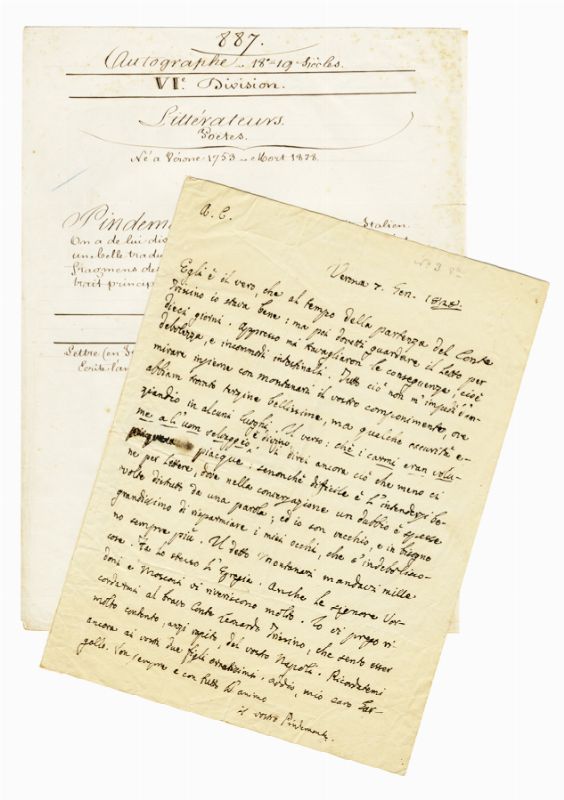 887.
Autographe – 18e–19 Siècles.
VIe Division.
Littérateurs.
Poetes.
Né a Vérone 1753 – Mort 1828.
Pindem
Italien.
On a de lui
un belle
Fragmens de
trait princip
Lettre (en
A. C.
Verona 7. Gen. 1828.
Egli è il vero che al tempo della partenza del Conte
Trissino io stava bene: ma poi dovetti guardare il letto per
dieci giorni. Appresso mi travagliaron le conseguenze, cioè
debolezza, e incommodi intestinali. Tutto ciò non m'impedì d'am-
mirare insieme con Montanari il vostro componimento, ove
abbiam trovato terzine bellissime, ma qualche oscurità e-
ziandio in alcuni luoghi. Il verso: che i carmi eran
me a l'uom è divino. Vi direi ancora ciò che meno ci
piacque, senonchè difficile è l'intendersi be-
ne per lettere, dove nella conversazione un dubbio è spesse
volte distrutto da una parola; ed io son vecchio, e in bisogno
grandissimo di risparmiare i miei occhi, che s'indebolisco-
no sempre più. Il detto Montanari mandavi mille
cose. Fa lo stesso l'
Anche le signore
e Mosconi vi riveriscono molto. Io vi prego ri-
cordarmi al bravo Conte Leonardo Trissino, che sento esser
molto contento, anzi rapito, del vostro Napoli. Ricordatemi
ancora ai vostri due figli ornatissimi, addio, mio caro Gar-
gallo. Son sempre e con tutto l'animo
il vostro Pindemonte.